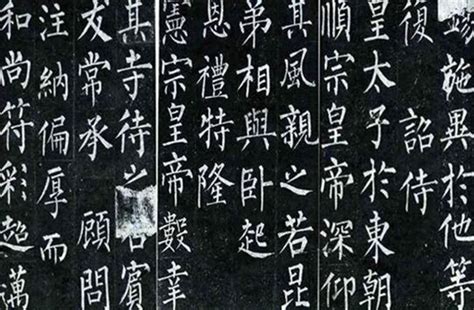 施異於他等
復 詔侍
皇太子於東朝
順宗皇帝深仰
其風親之若昆
弟相與臥起
恩禮特隆
憲宗皇帝數幸
其寺待之賓
友常承 顧問
注納偏厚而
和尚符彩超邁